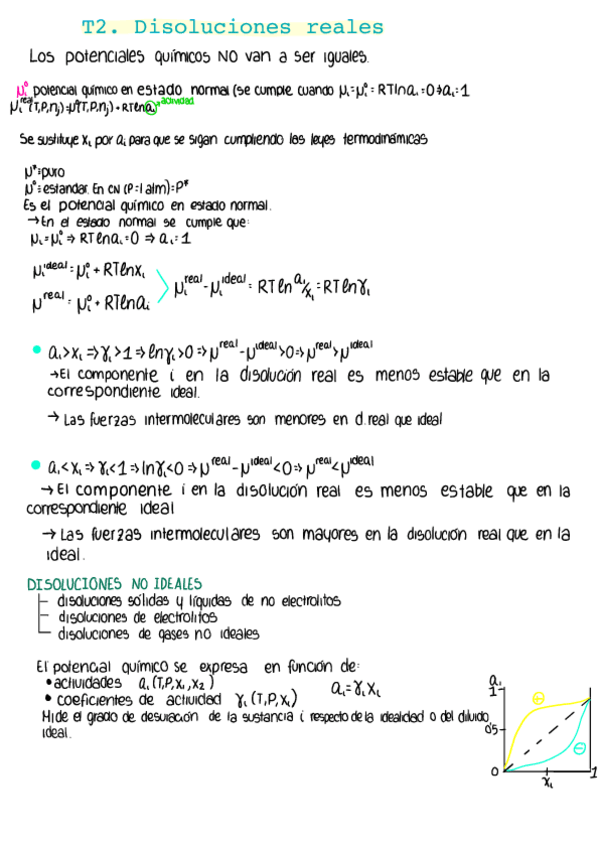 T2. Disoluciones reales
Los potenciales químicos NO van a ser iguales.
μᵢ° potencial químico en estado normal (se cumple cuando μᵢ=μᵢ°= RTlnaᵢ=0⇒aᵢ=1
μᵢʳᵉᵃˡ(T,P,nⱼ)=μᵢ°(T,P,nⱼ) + RTlnaᵢ actividad
Se sustituye xᵢ por aᵢ para que se sigan cumpliendo las leyes termodinámicas
μ*=puro
μ°=estandar. En CN (P=1 atm)=P*
Es el potencial químico en estado normal.
→En el estado normal se cumple que:
μᵢ=μᵢ° ⇒ RTlnaᵢ=0 ⇒ aᵢ=1
μᵢⁱᵈᵉᵃˡ=μᵢ°+RTlnxᵢ
μʳᵉᵃˡ = μᵢ°+RTlnaᵢ
μᵢʳᵉᵃˡ-μᵢⁱᵈᵉᵃˡ= RTln aᵢ/xᵢ = RTlnγᵢ
• aᵢ>xᵢ ⇒γᵢ>1⇒lnγᵢ>0⇒μʳᵉᵃˡ-μⁱᵈᵉᵃˡ>0⇒μʳᵉᵃˡ>μⁱᵈᵉᵃˡ
→El componente i en la disolución real es menos estable que en la
correspondiente ideal.
→ Las fuerzas intermoleculares son menores en d.real que ideal
• aᵢ<xᵢ⇒γᵢ<1⇒lnγᵢ<0⇒μʳᵉᵃˡ-μⁱᵈᵉᵃˡ<0⇒μʳᵉᵃˡ<μⁱᵈᵉᵃˡ
→El componente i en la disolución real es menos estable que en la
correspondiente ideal
→ Las fuerzas intermoleculares son mayores en la disolución real que en la
ideal.
DISOLUCIONES NO IDEALES
disoluciones sólidas y líquidas de no electrolitos
disoluciones de electrolitos
disoluciones de gases no ideales
El potencial químico se expresa en función de:
•actividades aᵢ(T,P,x₁,x₂)
aᵢ=γᵢxᵢ
• coeficientes de actividad γᵢ(T,P,xᵢ)
Mide el grado de desviación de la sustancia i respecto de la idealidad o del diluido
ideal.
aᵢ
1
0'5
0
xᵢ
1
⊖
⊖